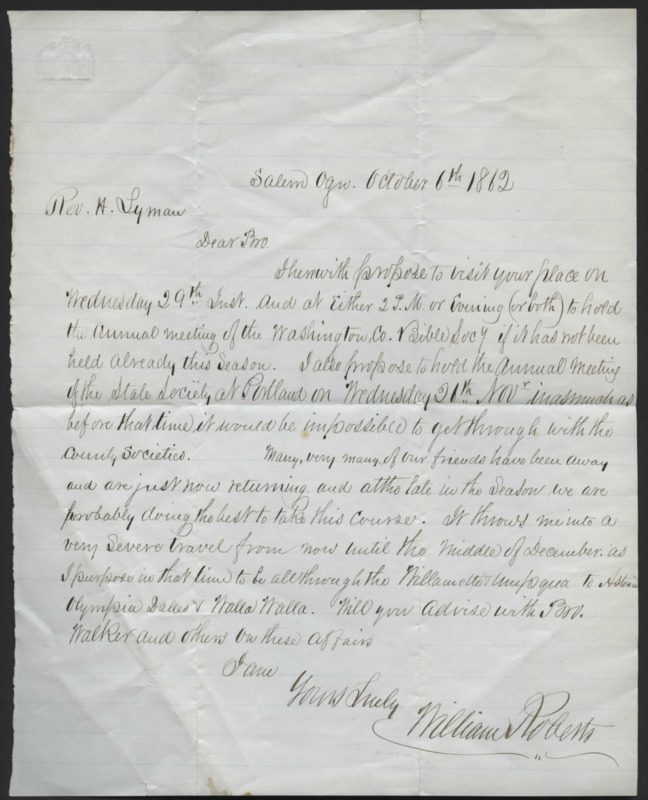 Salem Ogn. October 6th 1862
Rev. H. Lyman
Dear Bro.
I herewith propose to visit your place on
Wednesday 29th Inst. and at Either 2 P.M. or Evening (or both) to hold
the annual meeting of the Washington Co. Bible Socy if it has not been
held already this season. I also propose to hold the annual meeting
of the State Society at Portland on Wednesday 26th Novr inasmuch as
before that time it would be impossible to get through with the
County Societies. Many, very many, of our friends have been away
and are just now returning and altho late in the season we are
probably doing the best to take this course. It throws me into a
very severe travel from now until the middle of December. as
I purpose in that time to be all through the Willamette & Umpqua to
Olympia Dalles & Walla Walla. Will you advise with Bro.
Walker and others on these affairs
I am
Yours truly
William Roberts